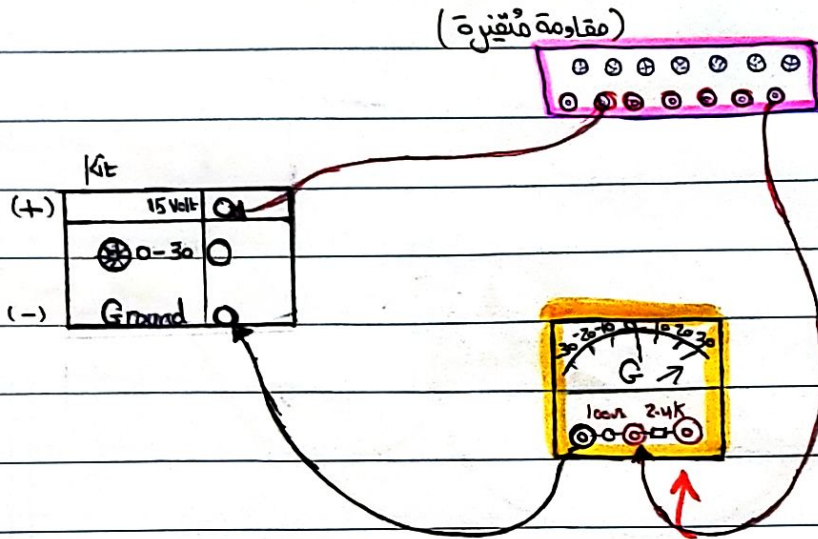 (مقاومة مُتغيرة)
Kit
(+) 15 Volt
0-30
(-) Ground
30 -20 -10 0 10 20 30
G
100Ω 2.4K